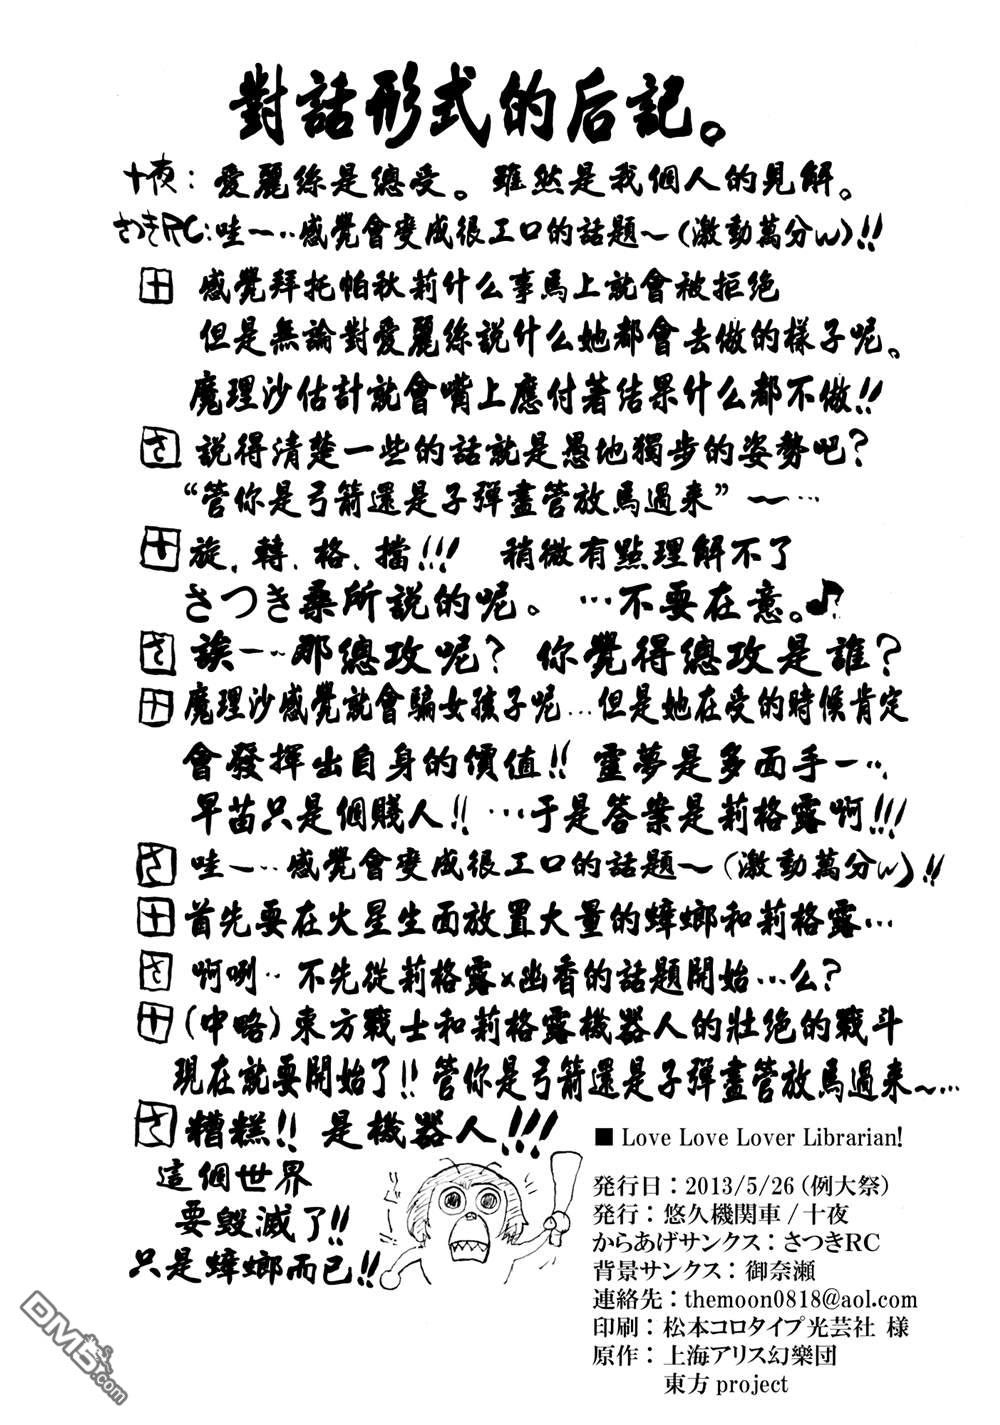 對話形式的后記。
十夜：愛麗絲是總受。雖然是我個人的見解。
さつきRC：哇～‥感覺會變成很工口的話題～(激動萬分w)!!
十 感覺拜托帕秋莉什么事馬上就會被拒絶
但是無論對愛麗絲説什么她都會去做的樣子呢。
魔理沙估計就會嘴上應付著结果什么都不做!!
さ 説得清楚一些的話就是愚地獨步的姿勢吧？
“管你是弓箭還是子弹盡管放馬過来”～…
十 旋、轉、格、擋!!! 稍微有點理解不了
さつき桑所説的呢。…不要在意。♪
さ 誒一‥那總攻呢？你覺得總攻是誰？
十 魔理沙感覺就會騙女孩子呢…但是她在受的時候肯定
會發揮出自身的價值!! 靈夢是多面手一‥
早苗只是個賤人!! …于是答案是莉格露啊!!!
さ 哇一‥感覺會變成很工口的話題～(激動萬分w)!!
十 首先要在火星生面放置大量的蟑螂和莉格露…
さ 啊咧‥不先從莉格露×幽香的話題開始…么？
十 (中略)東方戰士和莉格露機器人的壯绝的戰斗
現在就要開始了!! 管你是弓箭還是子弹盡管放馬過来～…
さ 糟糕!! 是機器人!!!
這個世界
要毀滅了!!
只是蟑螂而已!!
■ Love Love Lover Librarian!
発行日：2013/5/26（例大祭）
発行：悠久機関車 / 十夜
からあげサンクス：さつきRC
背景サンクス：御奈瀬
連絡先：themoon0818@aol.com
印刷：松本コロタイプ光芸社 様
原作：上海アリス幻樂団
東方 project